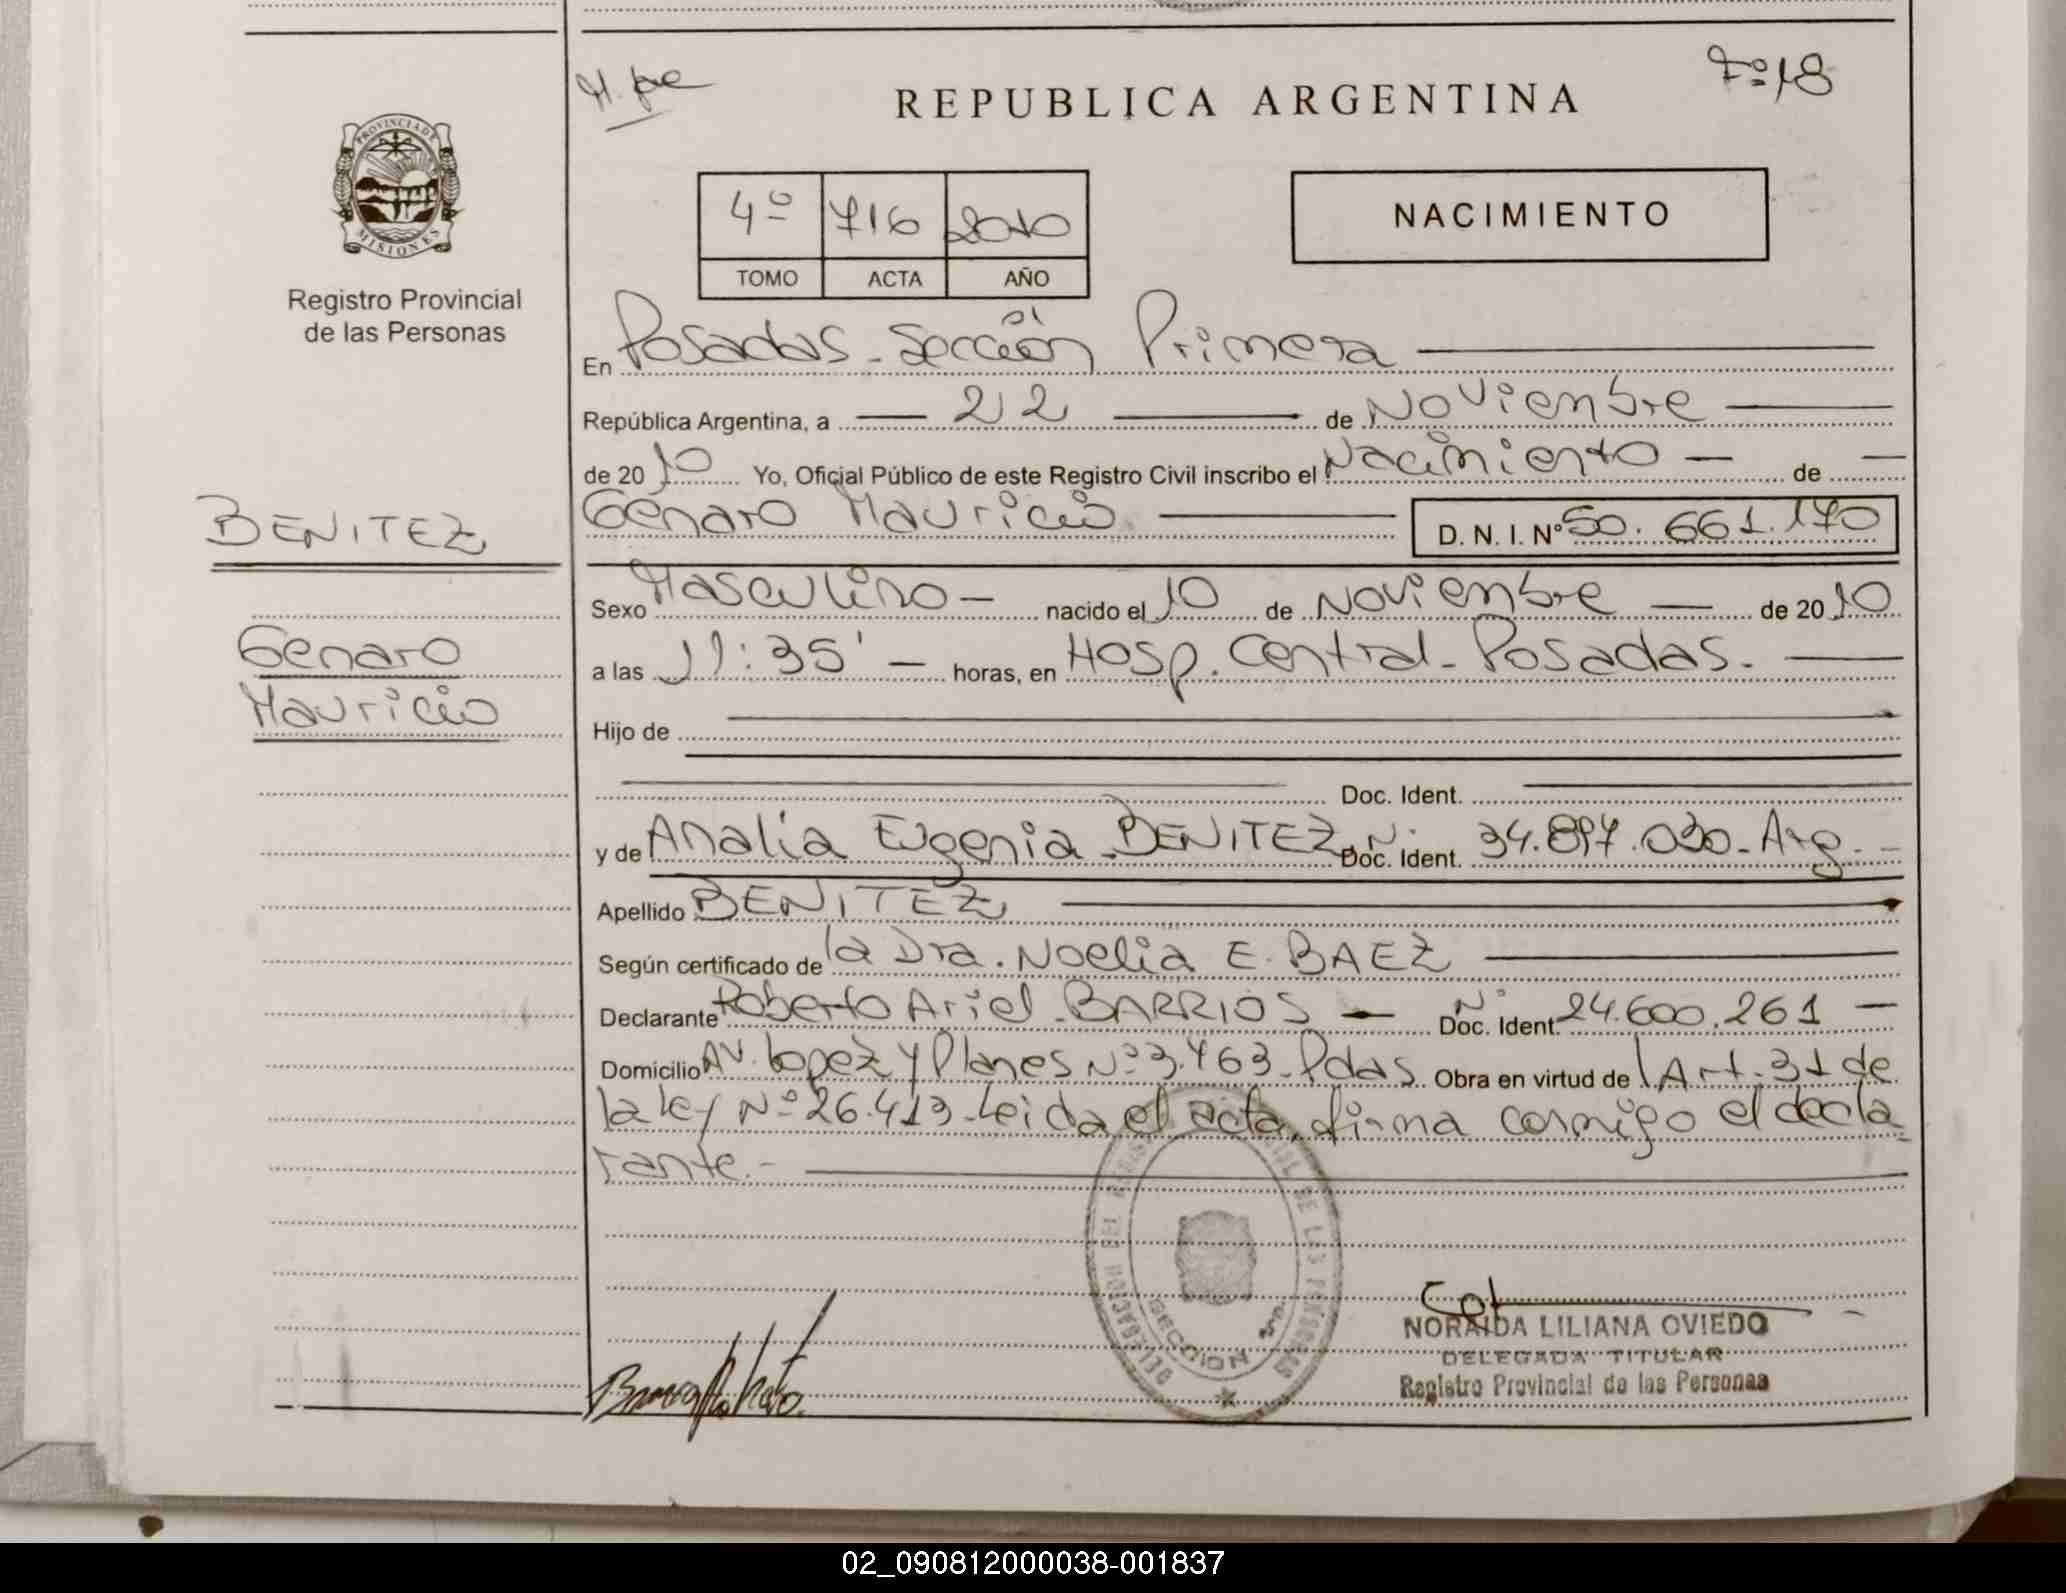 REPUBLICA ARGENTINA
Fº18
PROVINCIA DE MISIONES
Registro Provincial
de las Personas
4º 716 2010
TOMO ACTA AÑO
NACIMIENTO
En Posadas - Sección Primera
República Argentina, a 22 de Noviembre
de 2010 Yo, Oficial Público de este Registro Civil inscribo el Nacimiento de
BENITEZ
Genaro Mauricio D. N. I. Nº 50.661.170
Sexo Masculino - nacido el 10 de Noviembre de 2010
Genaro
Mauricio
a las 11:35' horas, en Hosp. Central - Posadas.
Hijo de
Doc. Ident.
y de Analía Eugenia BENITEZ Doc. Ident. N· 34.897.030 - Arg.
Apellido BENITEZ
Según certificado de la Dra. Noelia E. BAEZ
Declarante Roberto Ariel BARRIOS - Doc. Ident. N· 24.600.261
Domicilio AV. Lopez y Planes Nº 3.463 - Pdas. Obra en virtud de Art. 31 de
la ley Nº 26.413 - Leida el acta, firma conmigo el decla
rante.-
SECCION
NORAIDA LILIANA OVIEDO
DELEGADA TITULAR
Registro Provincial de las Personas
02_090812000038-001837